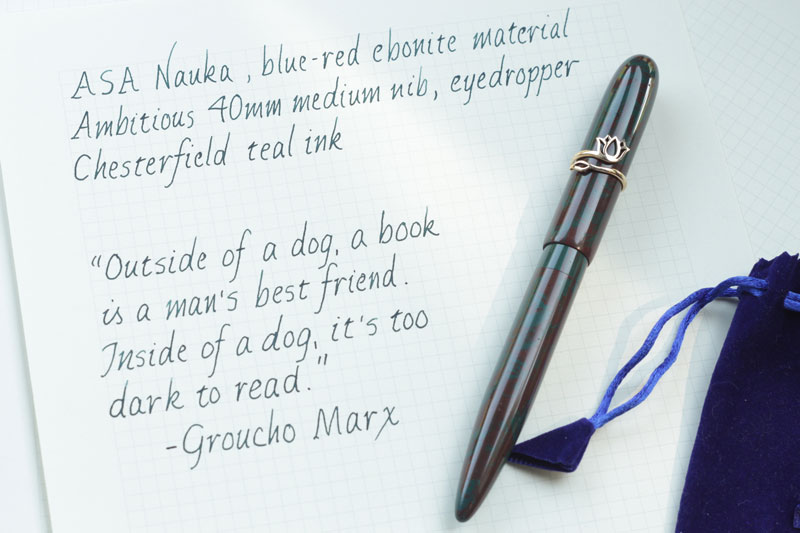 ASA Nauka, blue-red ebonite material
Ambitious 40mm medium nib, eyedropper
Chesterfield teal ink
"Outside of a dog, a book
is a man's best friend.
Inside of a dog, it's too
dark to read."
-Groucho Marx